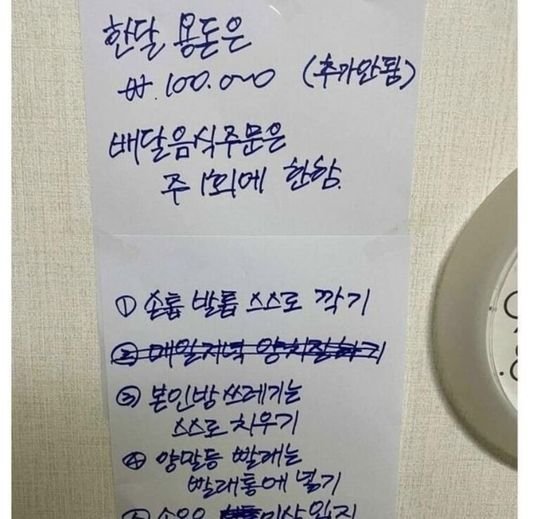 한달 용돈은
₩.100.000 (추가안됨)
배달음식주문은
주 1회에 한함.
① 손톱 발톱 스스로 깎기
② 매일저녁 양치질하기
③ 본인방 쓰레기는
스스로 치우기
④ 양말등 빨래는
빨래통에 넣기
⑤